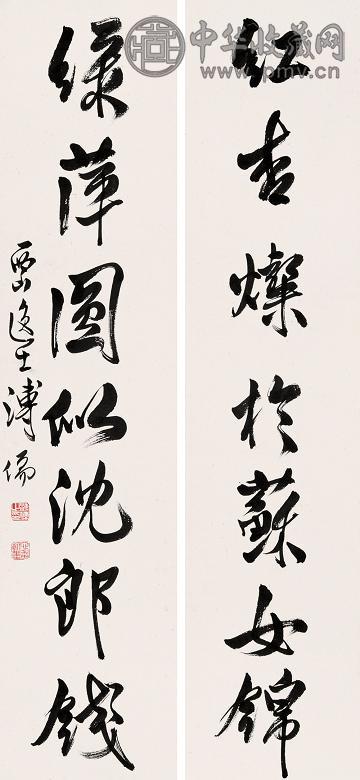 中华收藏网
www.pmv.cn
紅杏燦於蘇女錦
綠萍圓似沈郎錢
西山逸士溥儒